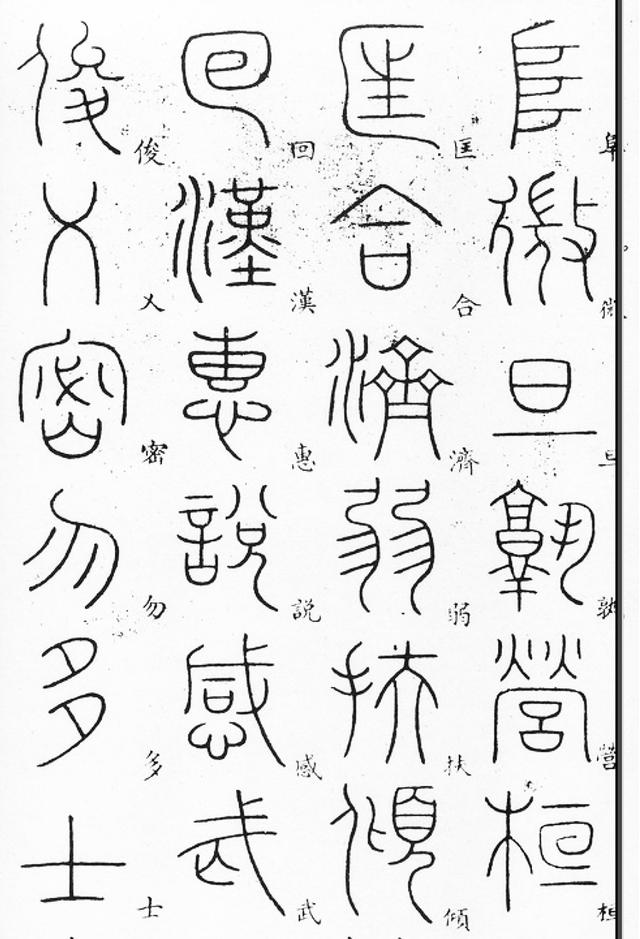 阜微旦孰營桓
匡合濟弱扶傾
回漢惠說感武
俊乂密勿多士